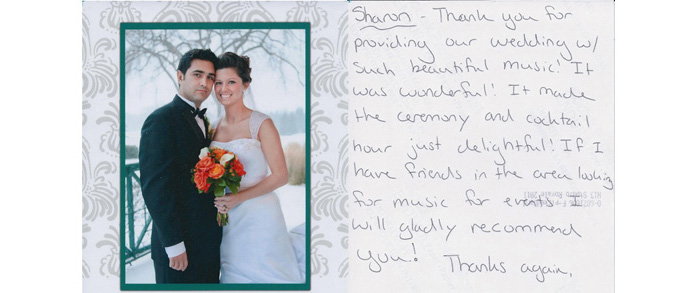 Sharon - Thank you for
providing our wedding w/
such beautiful music! It
was wonderful! It made
the ceremony and cocktail
hour just delightful! If I
have friends in the area looking
for music for events I
will gladly recommend
you! Thanks again.